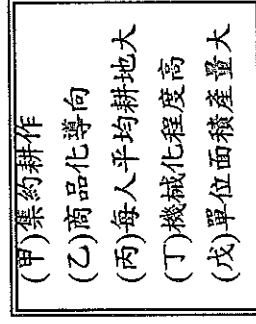 (甲)集約耕作
(乙)商品化導向
(丙)每人平均耕地大
(丁)機械化程度高
(戊)單位面積產量大